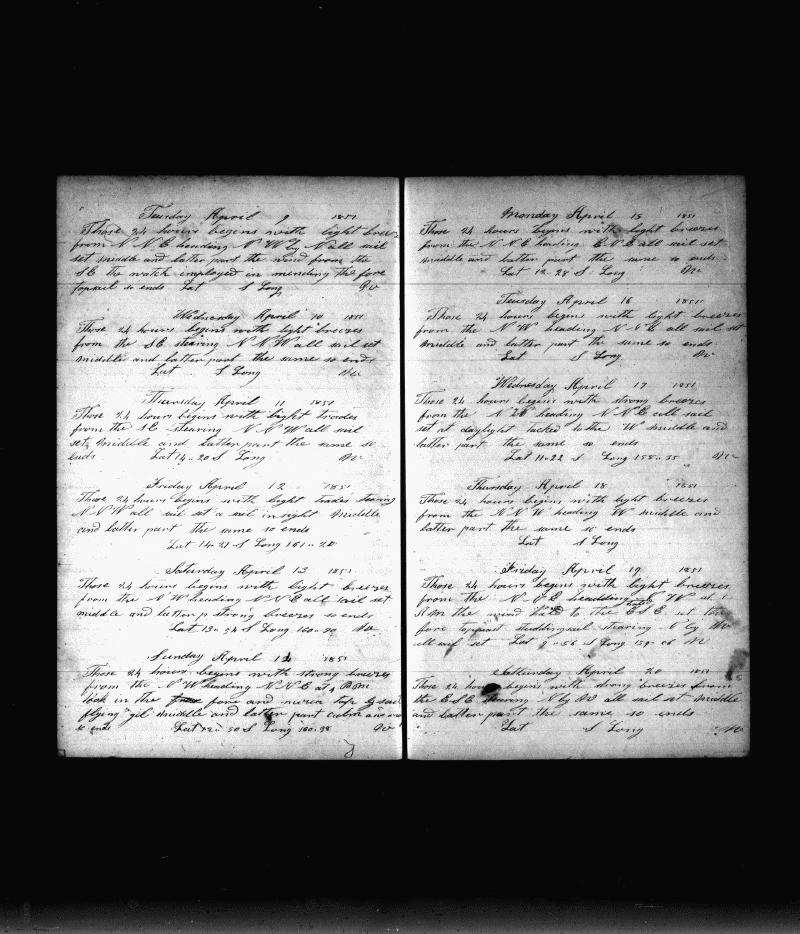 Tuesday April 9 1851
Those 24 hours begins with light breez
from N N E heading N W by N all sail
set middle and latter part the wind from the
S E the watch imployed in mending the fore
topsail so ends Lat S Long
Wednesday April 10 1851
Those 24 hours begins with light breezes
from the S E stearing N N W all sail set
middle and latter part the same so ends
Lat S Long
Thursday April 11 1851
Those 24 hours begins with light trades
from the S E stearing N N W all sail
set middle and latter part the same so
ends Lat 14 .. 20 S Long
Friday April 12 1851
Those 24 hours begins with light trades stearing
N N W all sail set a sail in sight middle
and latter part the same so ends
Lat 14 .. 21 S Long 161 .. 20
Saturday April 13 1851
Those 24 hours begins with light breezes
from the N W heading N N E all sail set
middle and latter p strong breezes so ends
Lat 13 .. 34 S Long 160 ..
Sunday April 14 1851
Those 24 hours begins with strong breezes
from the N W heading N N E at 4 P M
took in the fore and mizen top
flying gib middle and latter part calm
so ends Lat 12 .. 50 S Long 160 .. 38
Monday April 15 1851
Those 24 hours begins with light breezes
from the N N E heading E N E all sail set
middle and latter part the same so ends
Lat 12 .. 28 S Long
Tuesday April 16 1851
Those 24 hours begins with light breezes
from the N W heading N N E all sail set
middle and latter part the same so ends
Lat S Long
Wednesday April 17 1851
Those 24 hours begins with strong breezes
from the N W heading N N E all sail
set at daylight tacked to the W middle and
latter part the same so ends
Lat 11 .. 22 S Long 158 .. 55
Thursday April 18 1851
Those 24 hours begins with light breezes
from the N N W heading W middle and
latter part the same so ends
Lat S Long
Friday April 19 1851
Those 24 hours begins with light breezes
from the N E heading W at 1
A M the wind to the E S E set the
fore topmast studdingsail stearing N by W
all sail set Lat 9 .. 56 S Long 159 .. 06
Saturday April 20 1851
Those 24 hours begins with strong breezes from
the E S E stearing N by W all sail set middle
and latter part the same so ends
Lat S Long